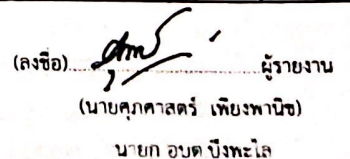 (ลงชื่อ) ผู้รายงาน
(นายศุภศาสตร์ เพียงพานิช)
นายก อบต บึงพะไล